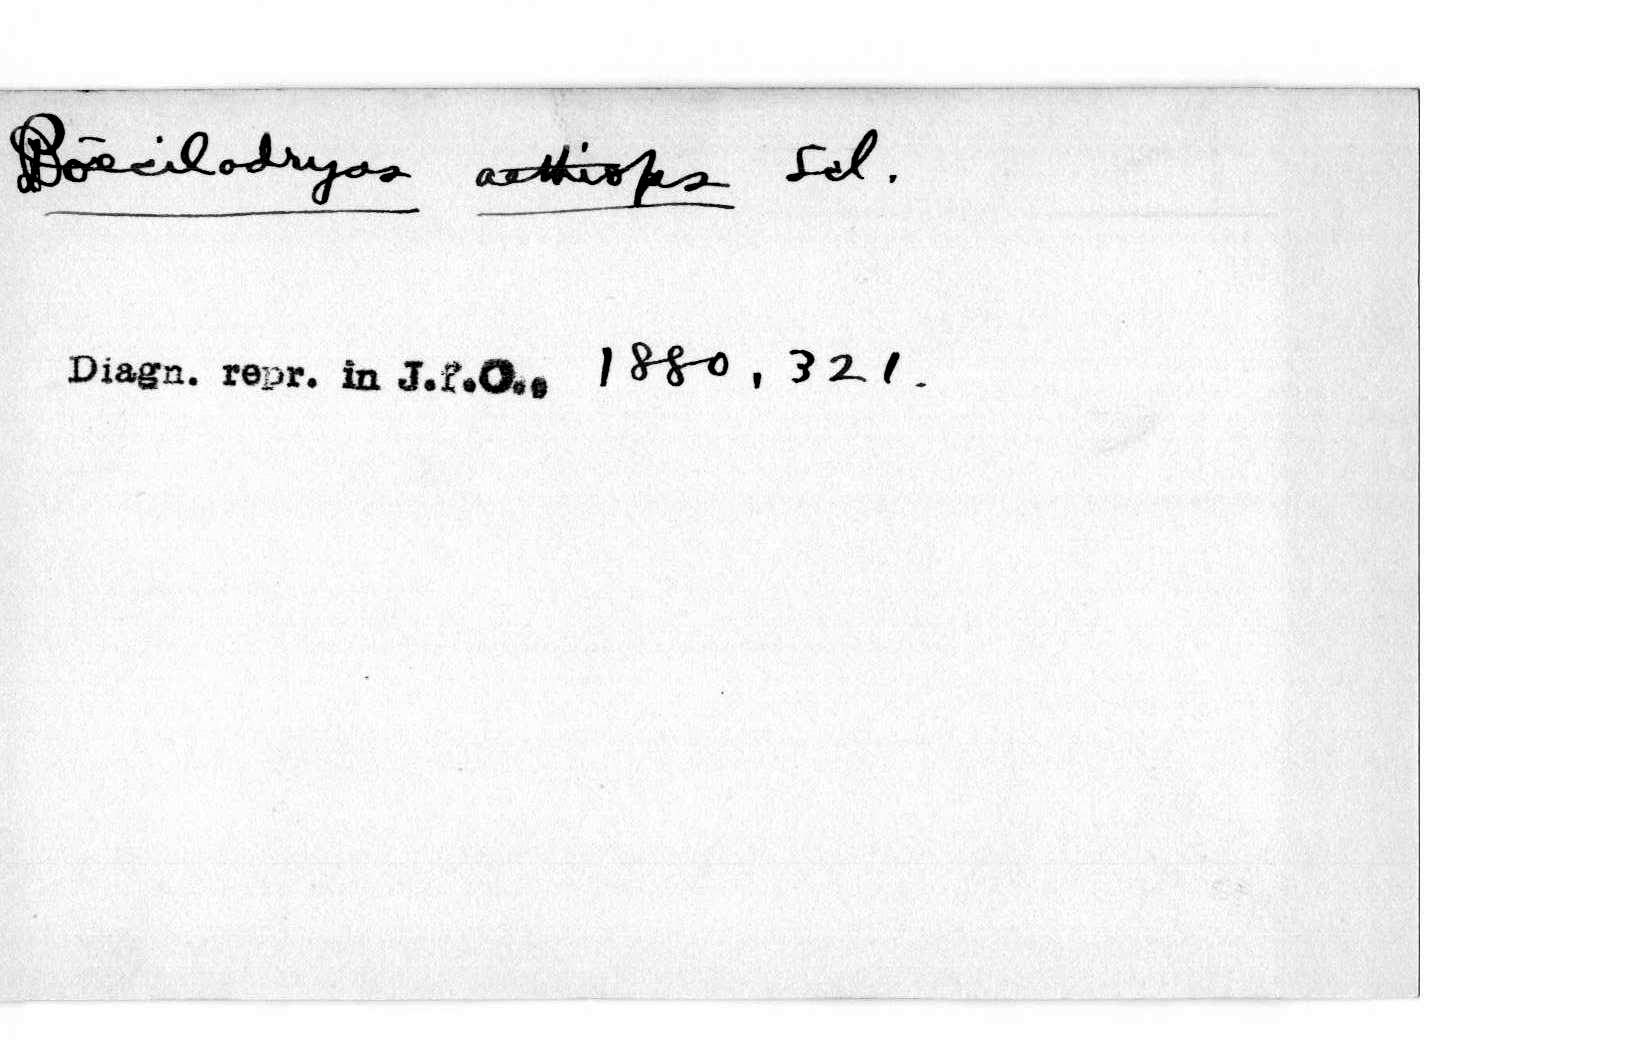 Poecilodryas aethiops Scl.
Diagn. repr. in J.f.O., 1880, 321.